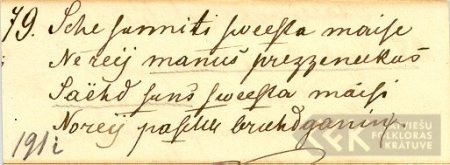 79. Sche sunniti sweesta maise
Nereij manus prezzeneekas
Saehd suns sweesta maisi
Noreij paschus brachdganin.
191i
LATVIEŠU
FOLKLORAS
KRĀTUVE